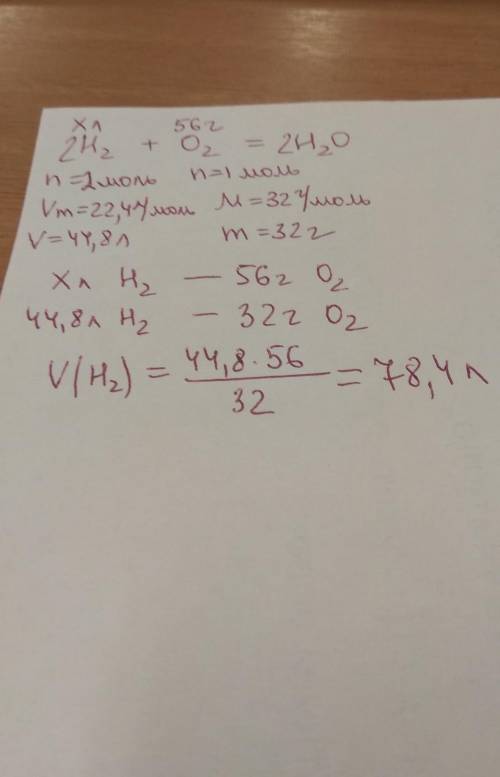 хл 56г
2H₂ + O₂ = 2H₂O
n=2моль n=1моль
Vm=22,4л/моль M=32г/моль
V=44,8л m=32г
Хл H₂ — 56г O₂
44,8л H₂ — 32г O₂
V(H₂) = 44,8·56 / 32 = 78,4л